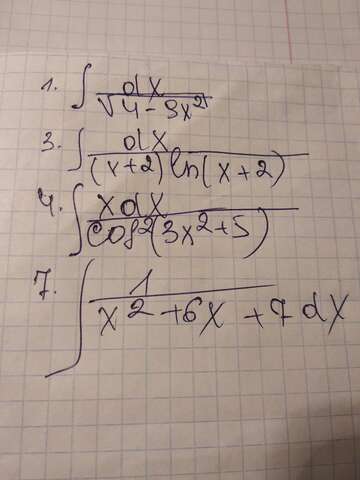 1. ∫ dx / √4 - 9x²
3. ∫ dx / (x+2) ln(x+2)
4. ∫ x dx / cos²(3x²+5)
7. ∫ 1 / x²+6x+7 dx